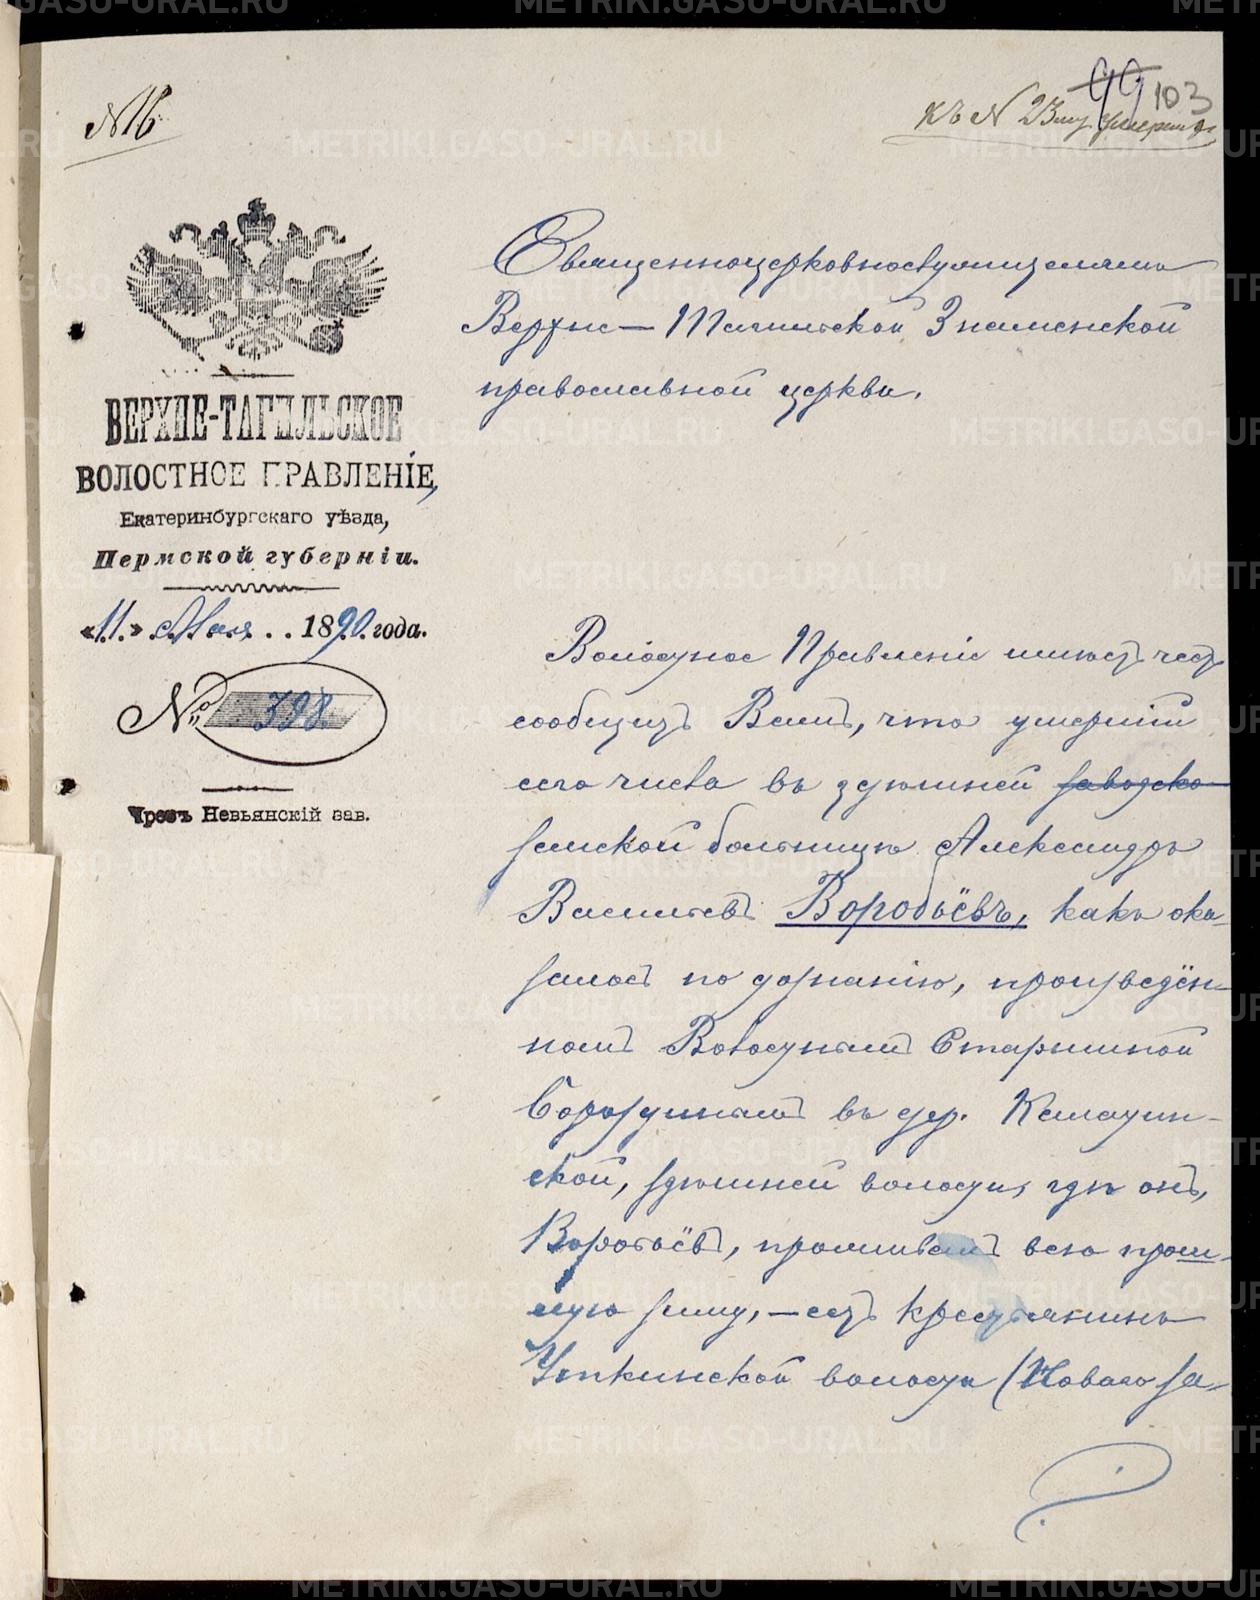 № 16
99 103
къ № 23 му умершихъ
ВЕРХНЕ-ТАГИЛЬСКОЕ
ВОЛОСТНОЕ ПРАВЛЕНІЕ,
Екатеринбургскаго уѣзда,
Пермской губерніи.
«11» Мая 1890 года.
№ 398
Чрезъ Невьянскій зав.
Священноцерковнослужителямъ
Верхне-Тагильской Знаменской
православной церкви.
Волостное Правленіе имѣетъ честь
сообщить Вамъ, что умершій
сего числа въ здѣшней заводско
земской больницѣ Александръ
Васильевъ Воробьёвъ, какъ ока-
залось по дознанію, произведён-
номъ Волостнымъ Старшиной
въ дер.
ской, здѣшней волости, гдѣ онъ,
Воробьёвъ, проживалъ всю прош-
лую зиму, — есть крестьянинъ
Уткинской волости (Новаго за-
METRIKI.GASO-URAL.RU